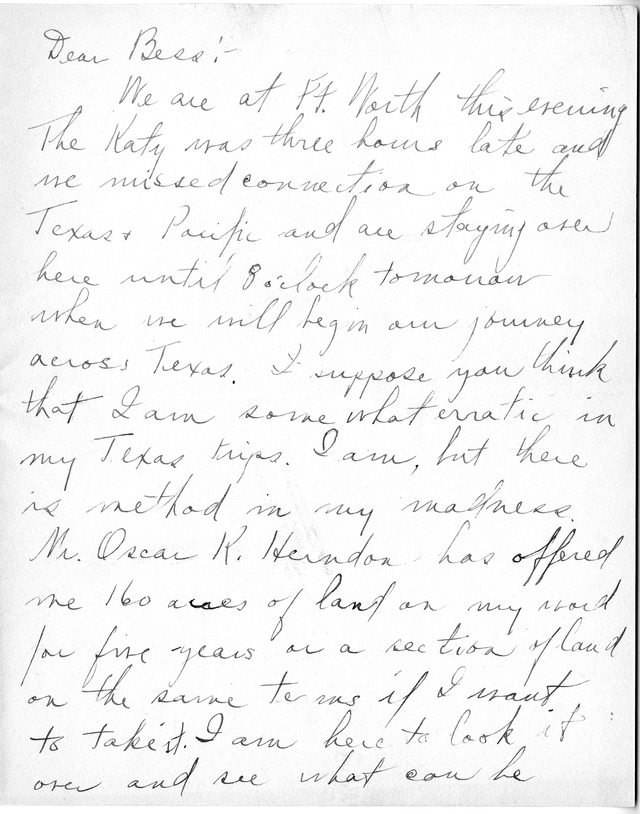 Dear Bess:-
We are at Ft. Worth this evening
The Katy was three hours late and
we missed connection on the
Texas & Pacific and are staying over
here until 8 o'clock tomorrow
when we will begin our journey
across Texas. I suppose you think
that I am somewhat erratic in
my Texas trips. I am, but there
is method in my madness.
Mr. Oscar K. Herndon has offered
me 160 acres of land on my word
for five years or a section of land
on the same terms if I want
to take it. I am here to look it
over and see what can be